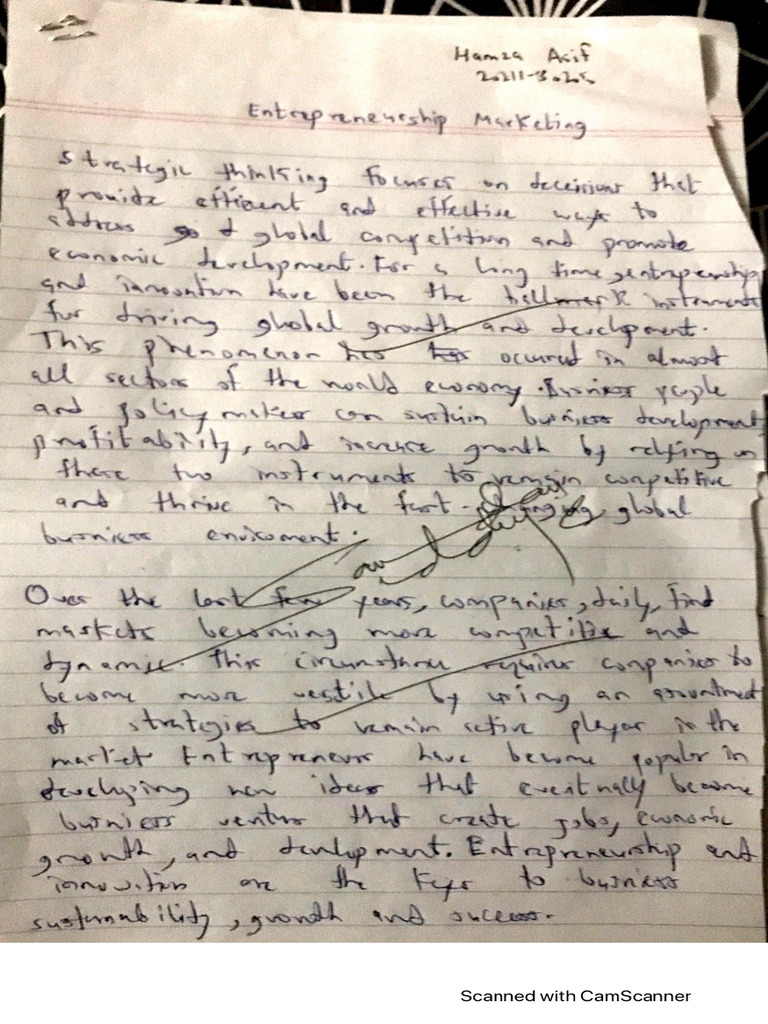 Hamza Asif
Entrepreneurship Marketing
Strategic thinking focuses on decisions that
provide efficient and effective ways to
address global competition and promote
economic development. For a long time, entrepenership
and innovation have been the hallmark instruments
for driving global growth and development.
This phenomenon has occured in almost
all sectors of the world economy. Business people
and policy makers can sustain business development,
profitability, and increase growth by relying on
these two instruments to remain competitive
and thrive in the fast-changing global
business enviroment.
Over the last few years, companies, daily, find
markets becoming more competitive and
dynamic. This circumstance requires companies to
become more by using an
of strategies to remain active player in the
market Entrepreneurs have become popular in
developing new ideas that eventually become
business ventures that create jobs, economic
growth, and development. Entrepreneurship and
innovation are the keys to business
sustainability, growth and success.
Scanned with CamScanner